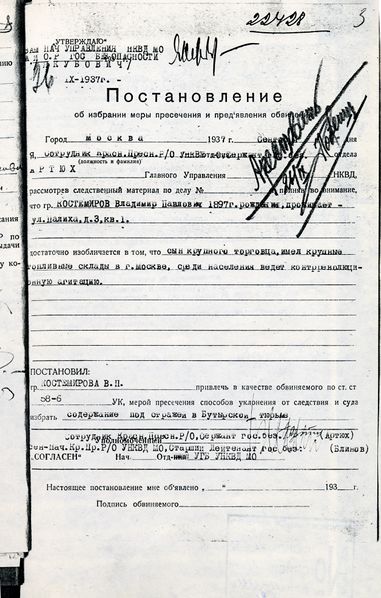 22428 3
УТВЕРЖДАЮ"
НАЧ УПРАВЛЕНИЯ НКВД МО
ГОС БЕЗОПАСНОСТИ
ЯКУБОВИЧ/
26 IX-1937г. -
Постановление
об избрании меры пресечения и предъявления обвинения
Город москва 1937 г. Сентя
Я, Сотрудник Красн.Пресн.Р/О УНКВД отдела
(должность и фамилия)
АРТЮХ Главного Управления НКВД,
рассмотрев следственный материал по делу № и приняв во внимание,
что гр. КОСТЕМИРОВ Владимир Павлович 1897г.рождения, проживает -
ул.Палиха, д.3, кв.1.
достаточно изобличается в том, что сын крупного торговца, имел крупные
топливные склады в г.Москве, среди населения ведет контрреволюци-
онную агитацию.
ПОСТАНОВИЛ:
гр. КОСТЕМИРОВА В.П. привлечь в качестве обвиняемого по ст. ст
58-6 УК, мерой пресечения способов уклонения от следствия и суда
избрать содержание под стражей в Бутырской тюрьме
Уполномоченный Сотрудник Красн.Пресн.Р/О, сержант гос.без. (Артюх)
Нач.Кр.Пр.Р/О УНКВД МО, Старший Лейтенант гос.без: (Блинов)
„СОГЛАСЕН" Нач. УГБ УНКВД МО
Настоящее постановление мне об'явлено „ " 193 г.
Подпись обвиняемого